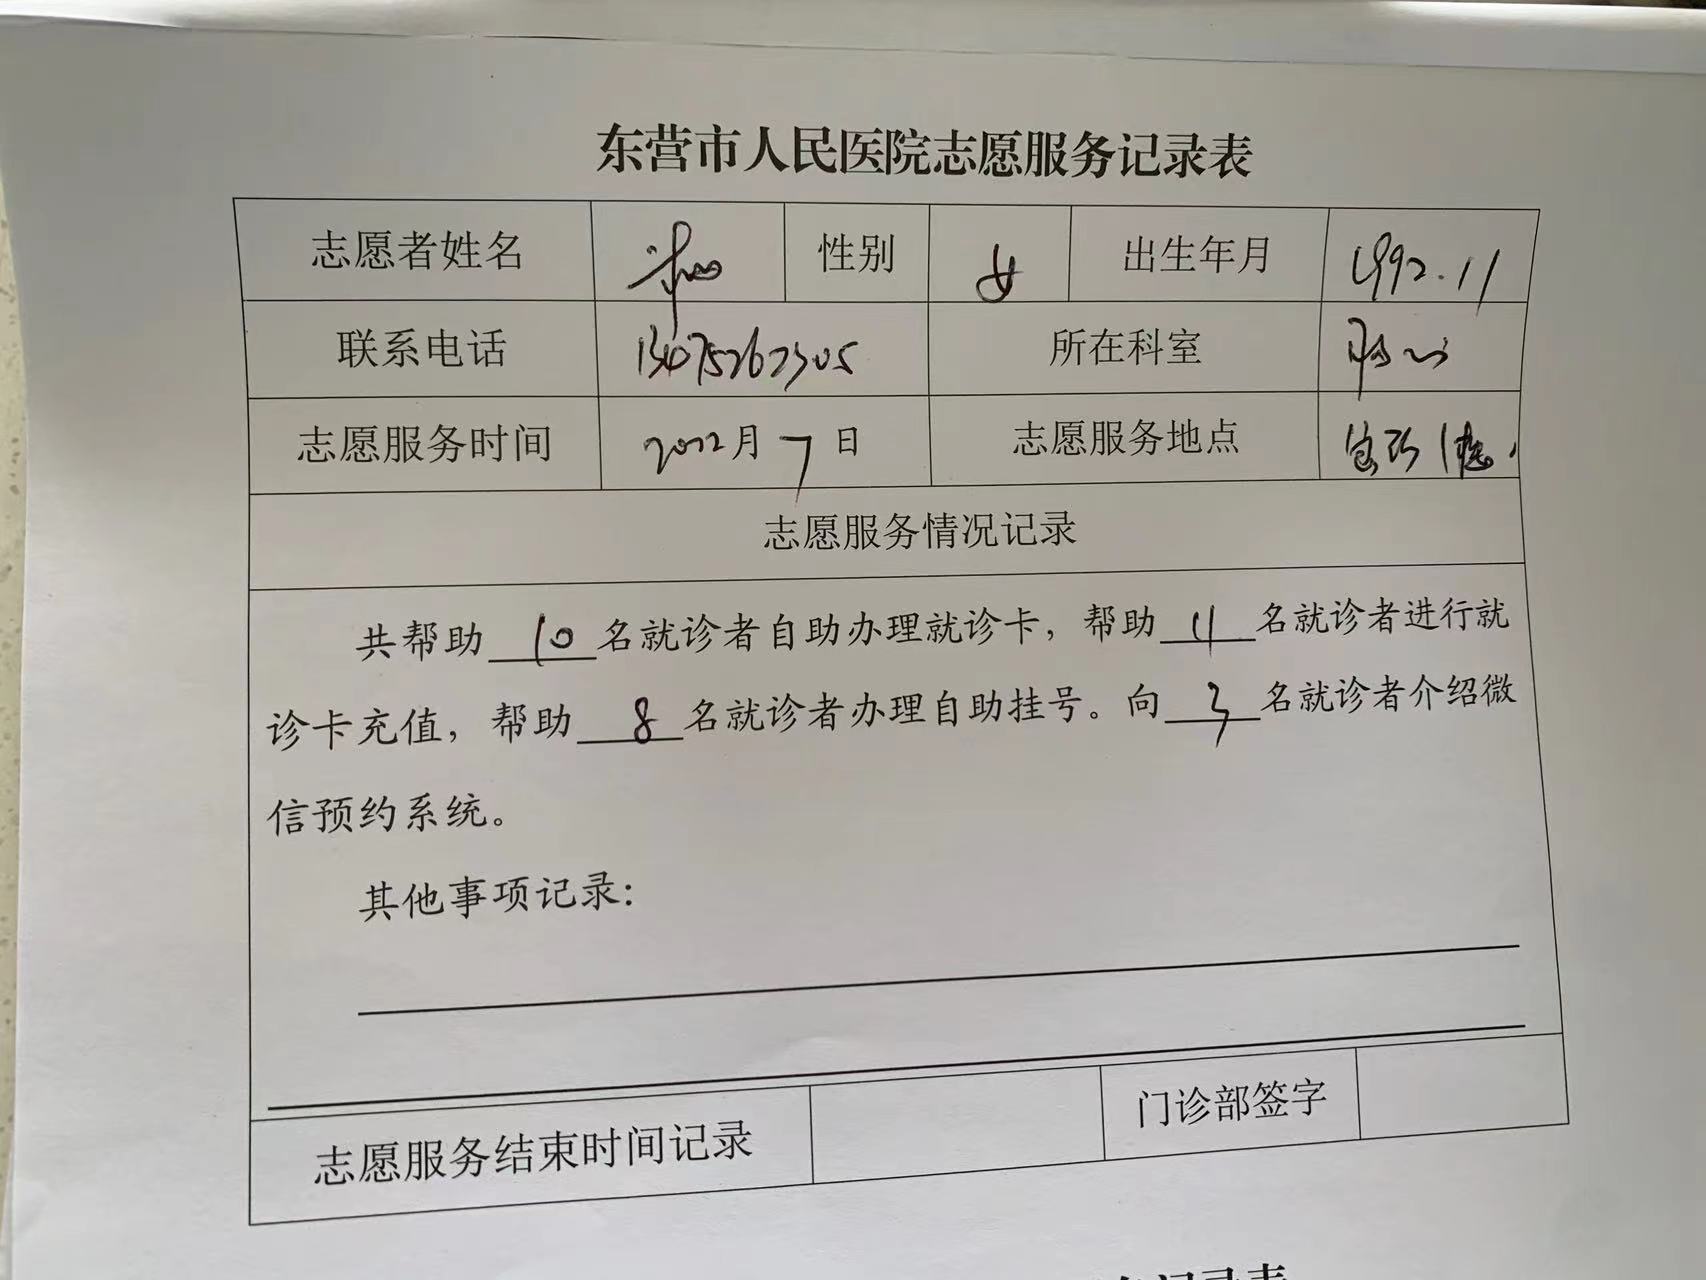 东营市人民医院志愿服务记录表
志愿者姓名 性别 女 出生年月 1992.11
联系电话 13075262305 所在科室
志愿服务时间 2022月7日 志愿服务地点
志愿服务情况记录
共帮助 10 名就诊者自助办理就诊卡，帮助 11 名就诊者进行就
诊卡充值，帮助 8 名就诊者办理自助挂号。向 3 名就诊者介绍微
信预约系统。
其他事项记录：
志愿服务结束时间记录 门诊部签字
记录表